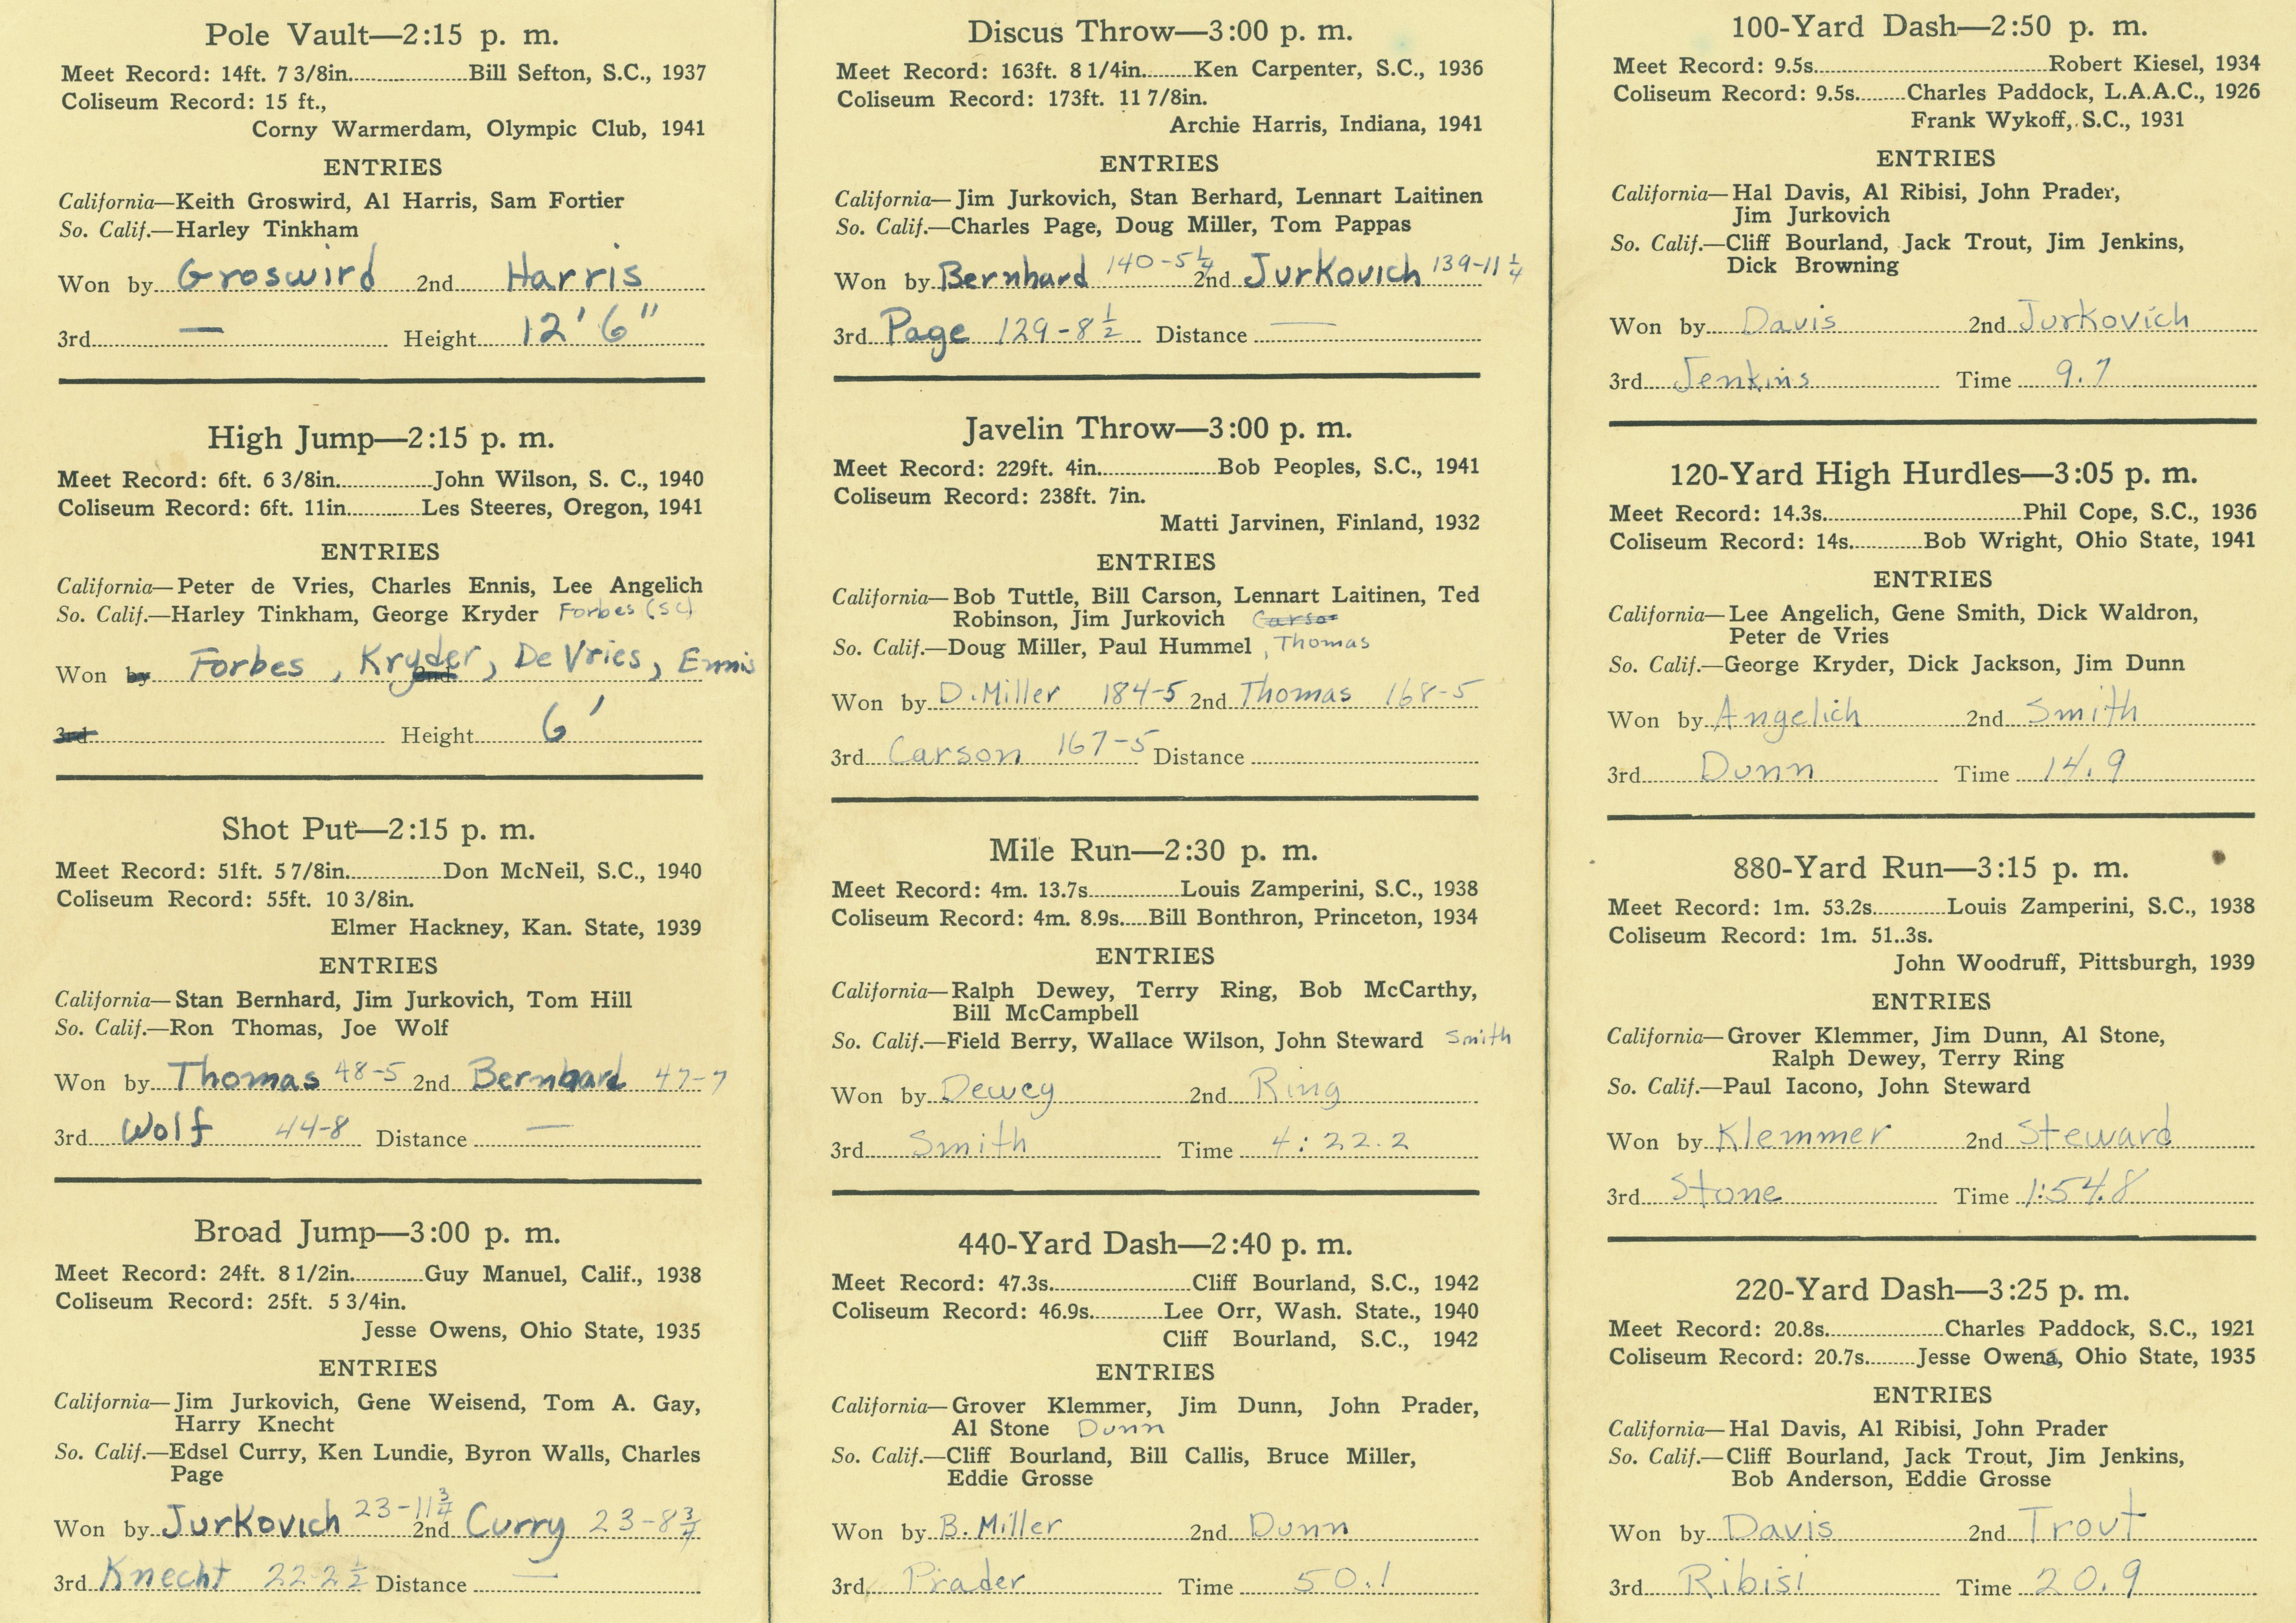 Pole Vault—2:15 p. m.
Meet Record: 14ft. 7 3/8in. Bill Sefton, S.C., 1937
Coliseum Record: 15 ft.,
Corny Warmerdam, Olympic Club, 1941
ENTRIES
California—Keith Groswird, Al Harris, Sam Fortier
So. Calif.—Harley Tinkham
Won by Groswird 2nd Harris
3rd — Height 12' 6"
High Jump—2:15 p. m.
Meet Record: 6ft. 6 3/8in. John Wilson, S. C., 1940
Coliseum Record: 6ft. 11in. Les Steeres, Oregon, 1941
ENTRIES
California—Peter de Vries, Charles Ennis, Lee Angelich
So. Calif.—Harley Tinkham, George Kryder Forbes (SC)
Won by Forbes, Kryder, 2nd De Vries, Ennis
3rd Height 6'
Shot Put—2:15 p. m.
Meet Record: 51ft. 5 7/8in. Don McNeil, S.C., 1940
Coliseum Record: 55ft. 10 3/8in.
Elmer Hackney, Kan. State, 1939
ENTRIES
California—Stan Bernhard, Jim Jurkovich, Tom Hill
So. Calif.—Ron Thomas, Joe Wolf
Won by Thomas 48-5 2nd Bernhard 47-7
3rd Wolf 44-8 Distance —
Broad Jump—3:00 p. m.
Meet Record: 24ft. 8 1/2in. Guy Manuel, Calif., 1938
Coliseum Record: 25ft. 5 3/4in.
Jesse Owens, Ohio State, 1935
ENTRIES
California—Jim Jurkovich, Gene Weisend, Tom A. Gay,
Harry Knecht
So. Calif.—Edsel Curry, Ken Lundie, Byron Walls, Charles
Page
Won by Jurkovich 23-11 3/4 2nd Curry 23-8 3/4
3rd Knecht 22 2 1/2 Distance —
Discus Throw—3:00 p. m.
Meet Record: 163ft. 8 1/4in. Ken Carpenter, S.C., 1936
Coliseum Record: 173ft. 11 7/8in.
Archie Harris, Indiana, 1941
ENTRIES
California—Jim Jurkovich, Stan Berhard, Lennart Laitinen
So. Calif.—Charles Page, Doug Miller, Tom Pappas
Won by Bernhard 140-5 1/4 2nd Jurkovich 139-11 1/4
3rd Page 129-8 1/2 Distance —
Javelin Throw—3:00 p. m.
Meet Record: 229ft. 4in. Bob Peoples, S.C., 1941
Coliseum Record: 238ft. 7in.
Matti Jarvinen, Finland, 1932
ENTRIES
California—Bob Tuttle, Bill Carson, Lennart Laitinen, Ted
Robinson, Jim Jurkovich Carson
So. Calif.—Doug Miller, Paul Hummel, Thomas
Won by D. Miller 184-5 2nd Thomas 168-5
3rd Carson 167-5 Distance
Mile Run—2:30 p. m.
Meet Record: 4m. 13.7s. Louis Zamperini, S.C., 1938
Coliseum Record: 4m. 8.9s. Bill Bonthron, Princeton, 1934
ENTRIES
California—Ralph Dewey, Terry Ring, Bob McCarthy,
Bill McCampbell
So. Calif.—Field Berry, Wallace Wilson, John Steward Smith
Won by Dewey 2nd Ring
3rd Smith Time 4:22.2
440-Yard Dash—2:40 p. m.
Meet Record: 47.3s. Cliff Bourland, S.C., 1942
Coliseum Record: 46.9s. Lee Orr, Wash. State., 1940
Cliff Bourland, S.C., 1942
ENTRIES
California—Grover Klemmer, Jim Dunn, John Prader,
Al Stone Dunn
So. Calif.—Cliff Bourland, Bill Callis, Bruce Miller,
Eddie Grosse
Won by B. Miller 2nd Dunn
3rd Prader Time 50.1
100-Yard Dash—2:50 p. m.
Meet Record: 9.5s. Robert Kiesel, 1934
Coliseum Record: 9.5s. Charles Paddock, L.A.A.C., 1926
Frank Wykoff, S.C., 1931
ENTRIES
California—Hal Davis, Al Ribisi, John Prader,
Jim Jurkovich
So. Calif.—Cliff Bourland, Jack Trout, Jim Jenkins,
Dick Browning
Won by Davis 2nd Jurkovich
3rd Jenkins Time 9.7
120-Yard High Hurdles—3:05 p. m.
Meet Record: 14.3s. Phil Cope, S.C., 1936
Coliseum Record: 14s. Bob Wright, Ohio State, 1941
ENTRIES
California—Lee Angelich, Gene Smith, Dick Waldron,
Peter de Vries
So. Calif.—George Kryder, Dick Jackson, Jim Dunn
Won by Angelich 2nd Smith
3rd Dunn Time 14.9
880-Yard Run—3:15 p. m.
Meet Record: 1m. 53.2s. Louis Zamperini, S.C., 1938
Coliseum Record: 1m. 51..3s.
John Woodruff, Pittsburgh, 1939
ENTRIES
California—Grover Klemmer, Jim Dunn, Al Stone,
Ralph Dewey, Terry Ring
So. Calif.—Paul Iacono, John Steward
Won by Klemmer 2nd Steward
3rd Stone Time 1:54.8
220-Yard Dash—3:25 p. m.
Meet Record: 20.8s. Charles Paddock, S.C., 1921
Coliseum Record: 20.7s. Jesse Owens, Ohio State, 1935
ENTRIES
California—Hal Davis, Al Ribisi, John Prader
So. Calif.—Cliff Bourland, Jack Trout, Jim Jenkins,
Bob Anderson, Eddie Grosse
Won by Davis 2nd Trout
3rd Ribisi Time 20.9